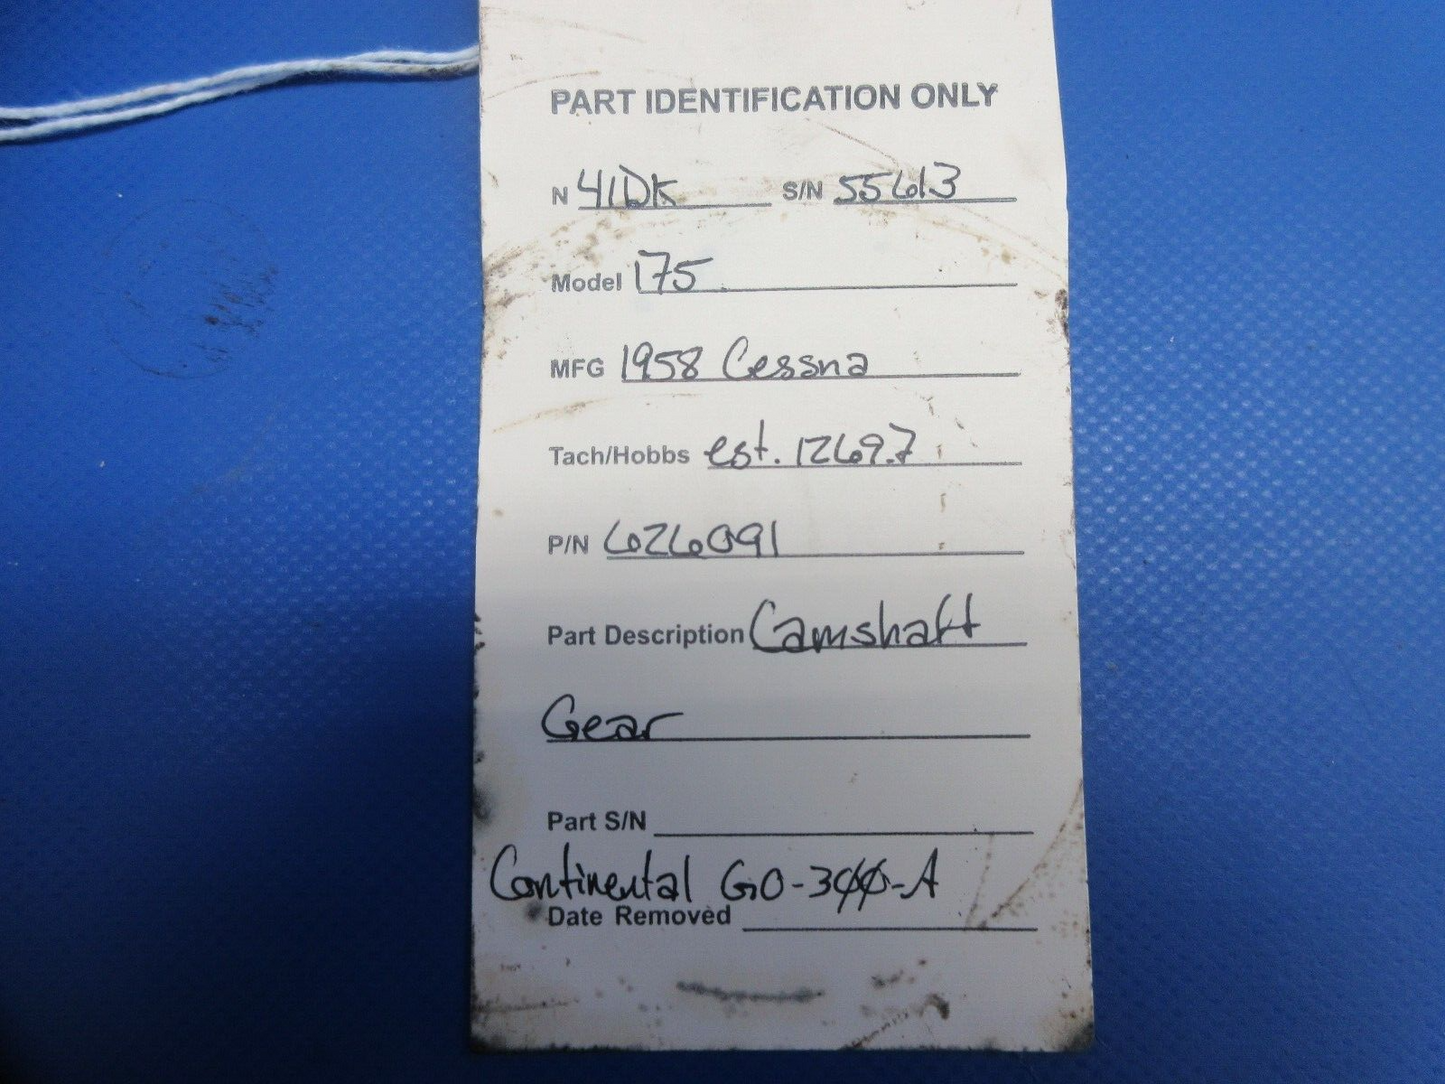 PART IDENTIFICATION ONLY
N 41DK S/N 55613
Model 175
MFG 1958 Cessna
Tach/Hobbs est. 1269.7
P/N 626091
Part Description Camshaft
Gear
Part S/N
Continental GO-300-A
Date Removed